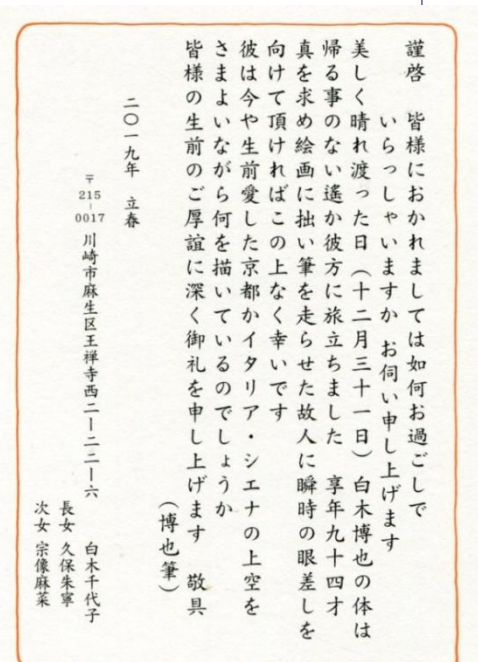 謹啓　皆様におかれましては如何お過ごしで
いらっしゃいますか　お伺い申し上げます
美しく晴れ渡った日（十二月三十一日）白木博也の体は
帰る事のない遙か彼方に旅立ちました　享年九十四才
真を求め絵画に拙い筆を走らせた故人に瞬時の眼差しを
向けて頂ければこの上なく幸いです
彼は今や生前愛した京都かイタリア・シエナの上空を
さまよいながら何を描いているのでしょうか
皆様の生前のご厚誼に深く御礼を申し上げます　敬具
（博也筆）
二〇一九年　立春
〒215-0017 川崎市麻生区王禅寺西二ー二二ー六
白木千代子
長女 久保朱寧
次女 宗像麻菜